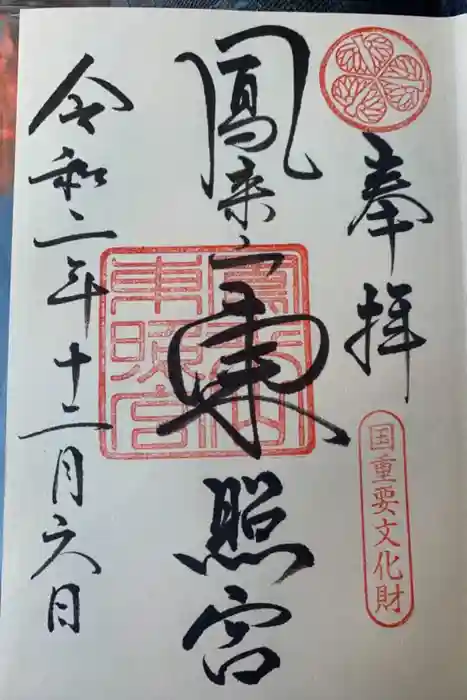 奉拝
国重要文化財
鳳来山東照宮
鳳来山東照宮
令和二年十二月六日